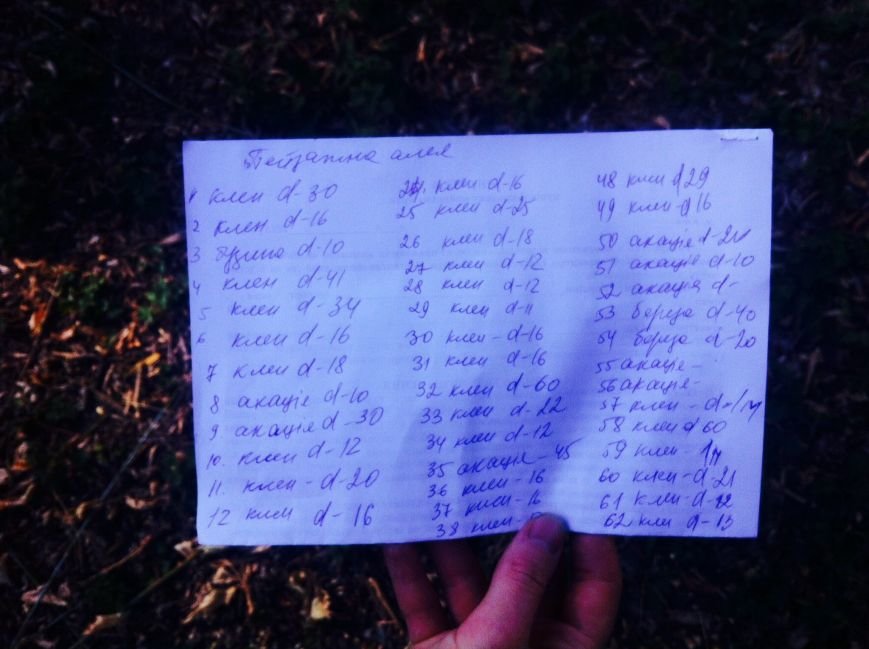 Пейзажна алея
1 клен d-30
2 клен d-16
3 бузина d-10
4 клен d-41
5 клен d-34
6 клен d-16
7 клен d-18
8 акація d-10
9 акація d-30
10. клен d-12
11. клен-d-20
12 клен d-16
24. клен d-16
25 клен d-25
26 клен d-18
27 клен d-12
28 клен d-12
29 клен d-11
30 клен-d-16
31 клен d-16
32 клен d-60
33 клен d-22
34 клен d-12
35 акація-45
36 клен-16
37 клен-16
38 клен-
48 клен d 29
49 клен-d 16
50 акація d-24
51 акація d-10
52 акація d-
53 береза d-40
54 береза d-20
55 акація-
56 акація-
57 клен-d-
58 клен d 60
59 клен-
60 клен-d-21
61 клен-d-12
62. клен d-13